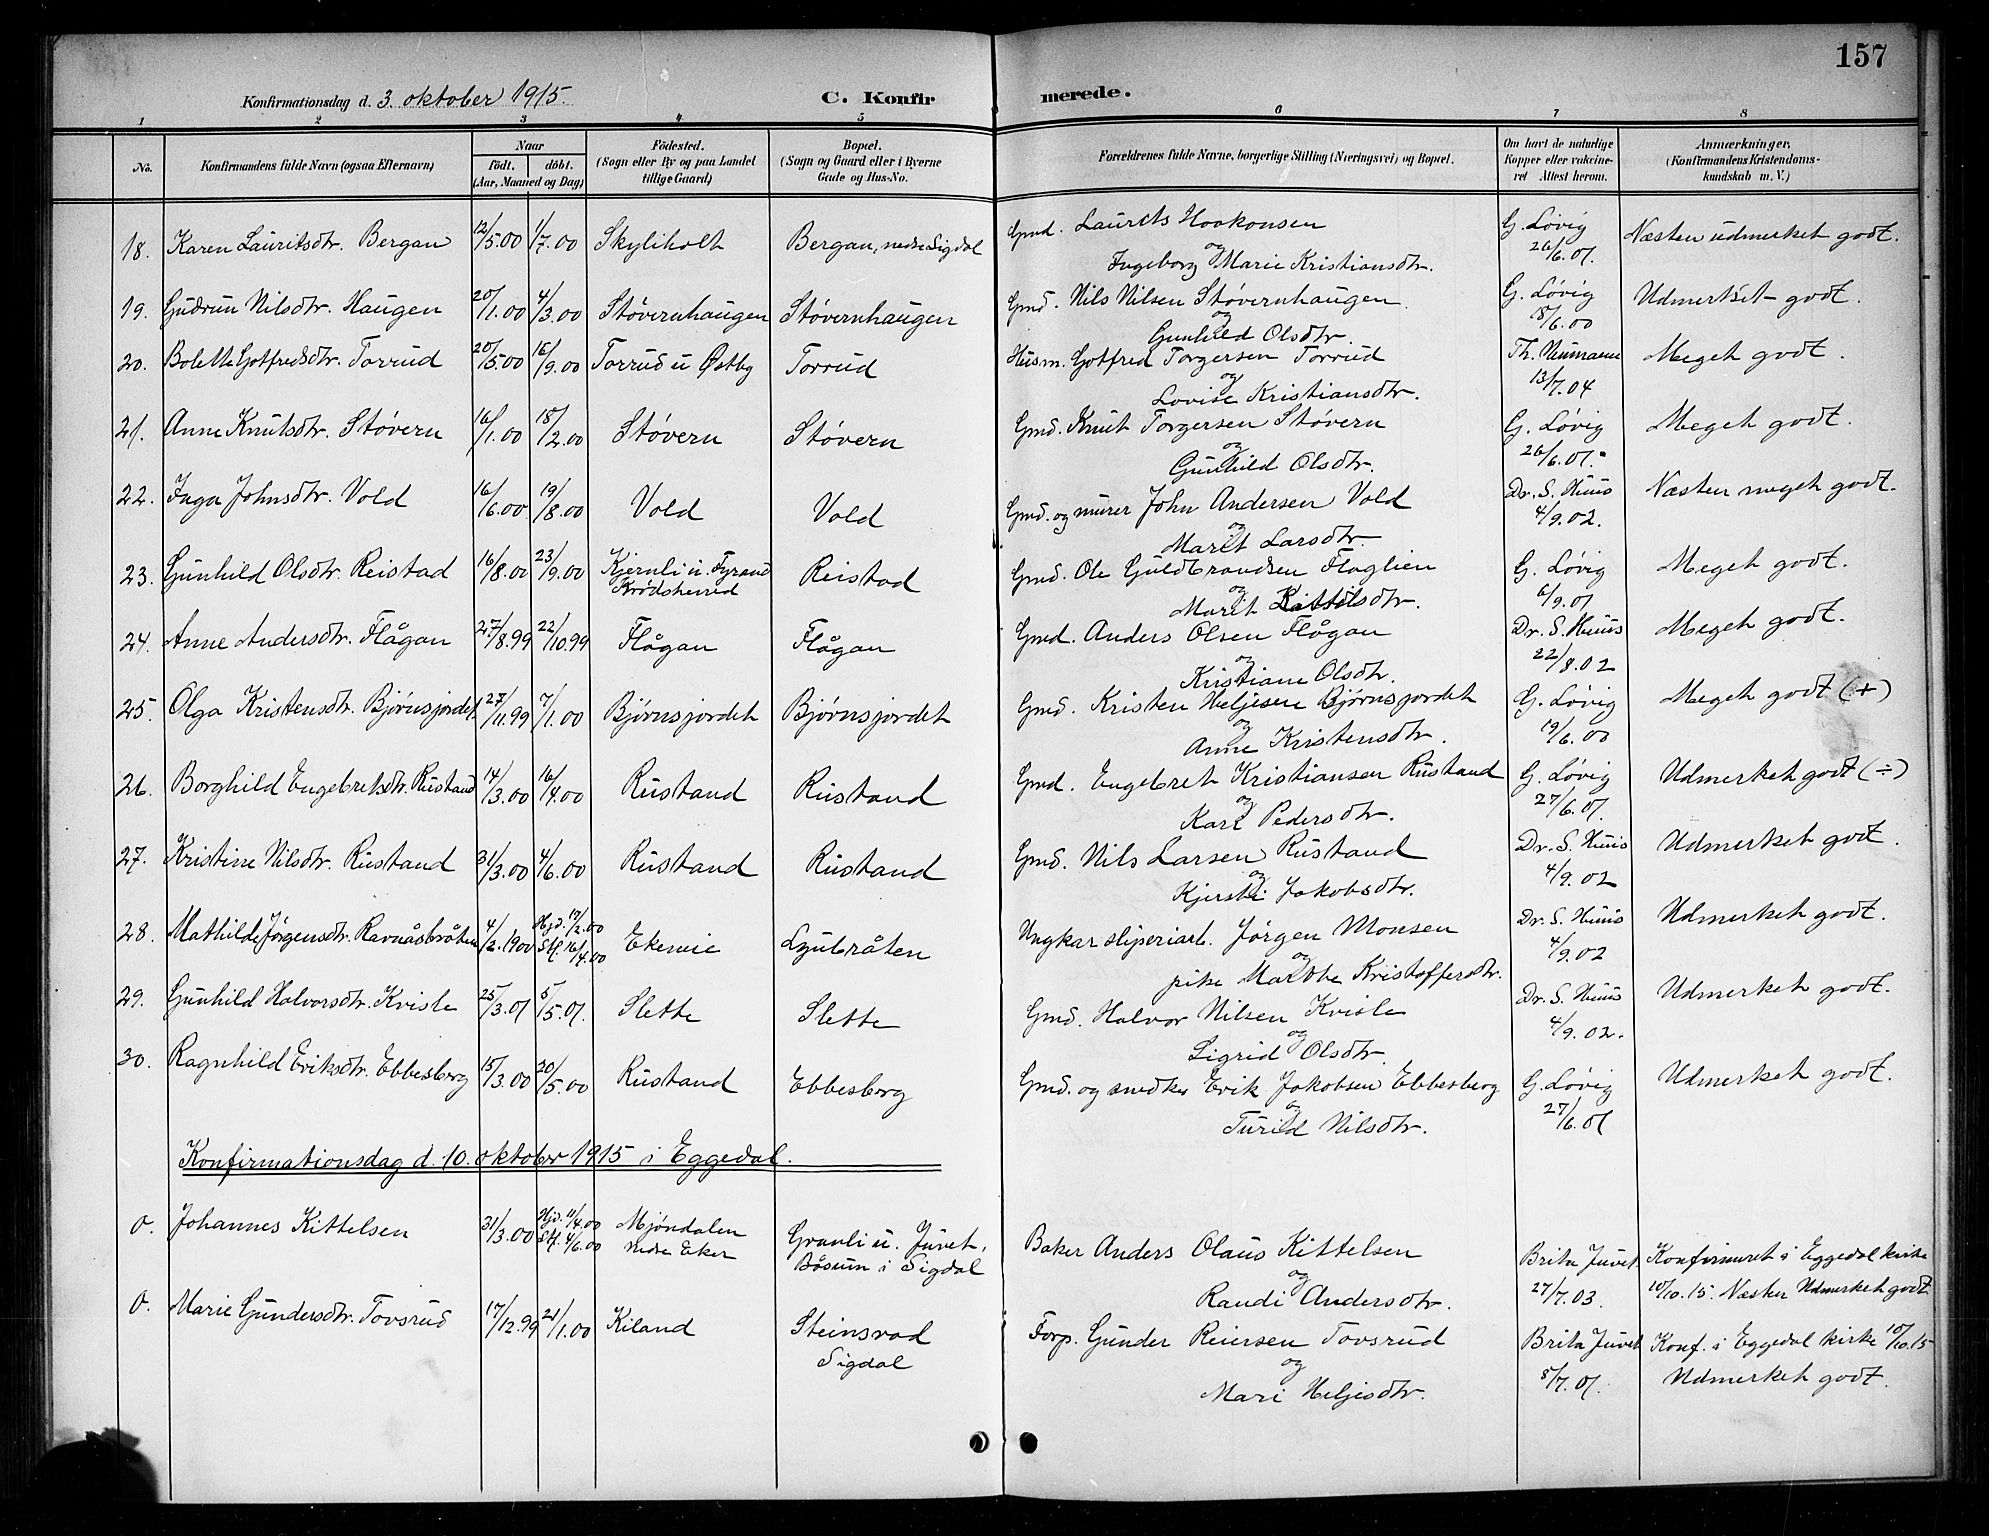 157
Konfirmationsdag d. 3. oktober 1915. C. Konfirmerede.
1 2 3 4 5 6 7 8
No. Konfirmandens fulde Navn (ogsaa Efternavn) Naar født. døbt. (Aar, Maaned og Dag) Fødested. (Sogn eller By og paa Landet tillige Gaard) Bopæl. (Sogn og Gaard eller i Byerne Gade og Hus-No. Forældrenes fulde Navne, borgerlige Stilling (Næringsvei) og Bopæl. Om havt de naturlige Kopper eller vaccineret Attest herom. Anmærkninger. (Konfirmandens Kristendomskundskab m. V.)
18. Karen Lauritsdtr. Bergan 12/5.00 1/7.00 Skyliholt Bergan, nedre Sigdal Gmd. Laurets Haakonsen G. Løvig Næsten udmerket godt.
og Ingeborg Marie Kristiansdtr. 26/6.01.
19. Gudrun Nilsdtr. Haugen 20/1.00 4/3.00 Støvernhaugen Støvernhaugen Gmd. Nils Nilsen Støvernhaugen G. Løvig Udmerket godt.
og Gunhild Olsdtr. 8/6.00
20. Bolette Gotfredsdtr. Torrud 20/5.00 16/9.00 Torrud u Østby Torrud Husm. Gotfred Torgersen Torrud Th. Neumann Meget godt.
og Lovise Kristiansdtr. 13/7.04
21. Anne Knutsdtr. Støvern 16/1.00 18/2.00 Støvern Støvern Gmd. Knut Torgersen Støvern G. Løvig Meget godt.
og Gunhild Olsdtr. 26/6.01.
22. Inga Johnsdtr. Vold 16/6.00 19/8.00 Vold Vold Gmd. og murer John Andersen Vold Dr. S. Huus Næsten meget godt.
og Marit Larsdtr. 4/9.02.
23. Gunhild Olsdtr. Reistad 16/8.00 23/9.00 Kjernli u. Fyrand Krødsherred Reistad Gmd. Ole Guldbrandsen Flaglien G. Løvig Meget godt.
og Marit Kittilsdtr. 6/9.01
24. Anne Andersdtr. Flågan 27/8.99 22/10.99 Flågan Flågan Gmd. Anders Olsen Flågan Dr. S. Huus Meget godt.
og Kristiane Olsdtr. 22/8.02
25. Olga Kristensdtr. Bjørnsjordet 27/11.99 7/1.00 Bjørnsjordet Bjørnsjordet Gmd. Kristen Heljesen Bjørnsjordet G. Løvig Meget godt (+)
og Anne Kristensdtr. 19/6.00
26. Borghild Engebretsdtr. Rustand 14/3.00 16/4.00 Rustand Rustand Gmd. Engebret Kristiansen Rustand G. Løvig Udmerket godt (÷)
og Kari Pedersdtr. 27/6.01.
27. Kristine Nilsdtr. Rustand 31/3.00 4/6.00 Rustand Rustand Gmd. Nils Larsen Rustand Dr. S. Huus Udmerket godt.
og Kjersti Jakobsdtr. 4/9.02
28. Mathilde Jørgensdtr. Ravnåsbråten 4/2.1900 Hjd. 12/2.00 Stf. 16/4.00 Ekernie Lyubråten Ungkar sliperiarb. Jørgen Monsen Dr. S. Huus Udmerket godt.
og pike Marthe Kristoffersdtr. 4/9.02
29. Gunhild Halvorsdtr. Kvisle 25/3.01 5/5.01. Slette Slette Gmd. Halvor Nilsen Kvisle Dr. S. Huus Udmerket godt.
og Sigrid Olsdtr. 4/9.02.
30. Ragnhild Eriksdtr. Ebbesberg 15/3.00 20/5.00 Rustand Ebbesberg Gmd. og snedker Erik Jakobsen Ebbesberg G. Løvig Udmerket godt.
og Turid Nilsdtr. 27/6.01
Konfirmationsdag d. 10. oktober 1915 i Eggedal.
0. Johannes Kittelsen 31/3.00 Hjd. 11/4.00 Stf. 4/6.00 Mjøndalen nedre Eker Granli u. Juvet, Båsum i Sigdal Baker Anders Olaus Kittelsen Brita Juvet Konfirmeret i Eggedal kirke
og Randi Andersdtr. 27/7.03. 10/10.15. Næsten Udmerket godt
0. Marie Gundersdtr. Tovsrud 17/12.99 21/1.00 Kiland Steinsrad Sigdal Forp. Gunder Reiersen Tovsrud Brita Juvet Konf. i Eggedal kirke 10/10.15
og Mari Heljesdtr. 8/7.01. Udmerket godt.